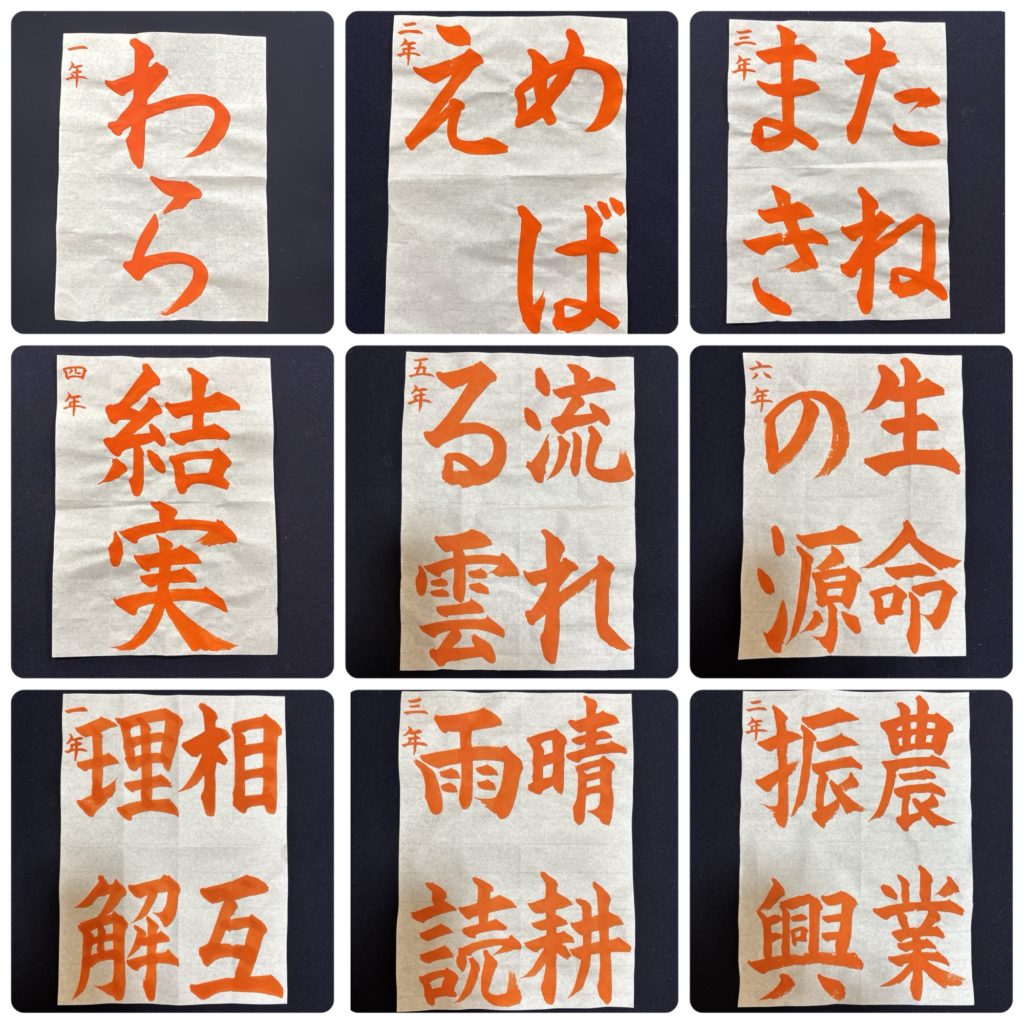 一年
わら
二年
めば
え
三年
たね
まき
四年
結実
五年
流れ
る雲
六年
生命
の源
一年
相互
理解
三年
晴耕
雨読
二年
農業
振興